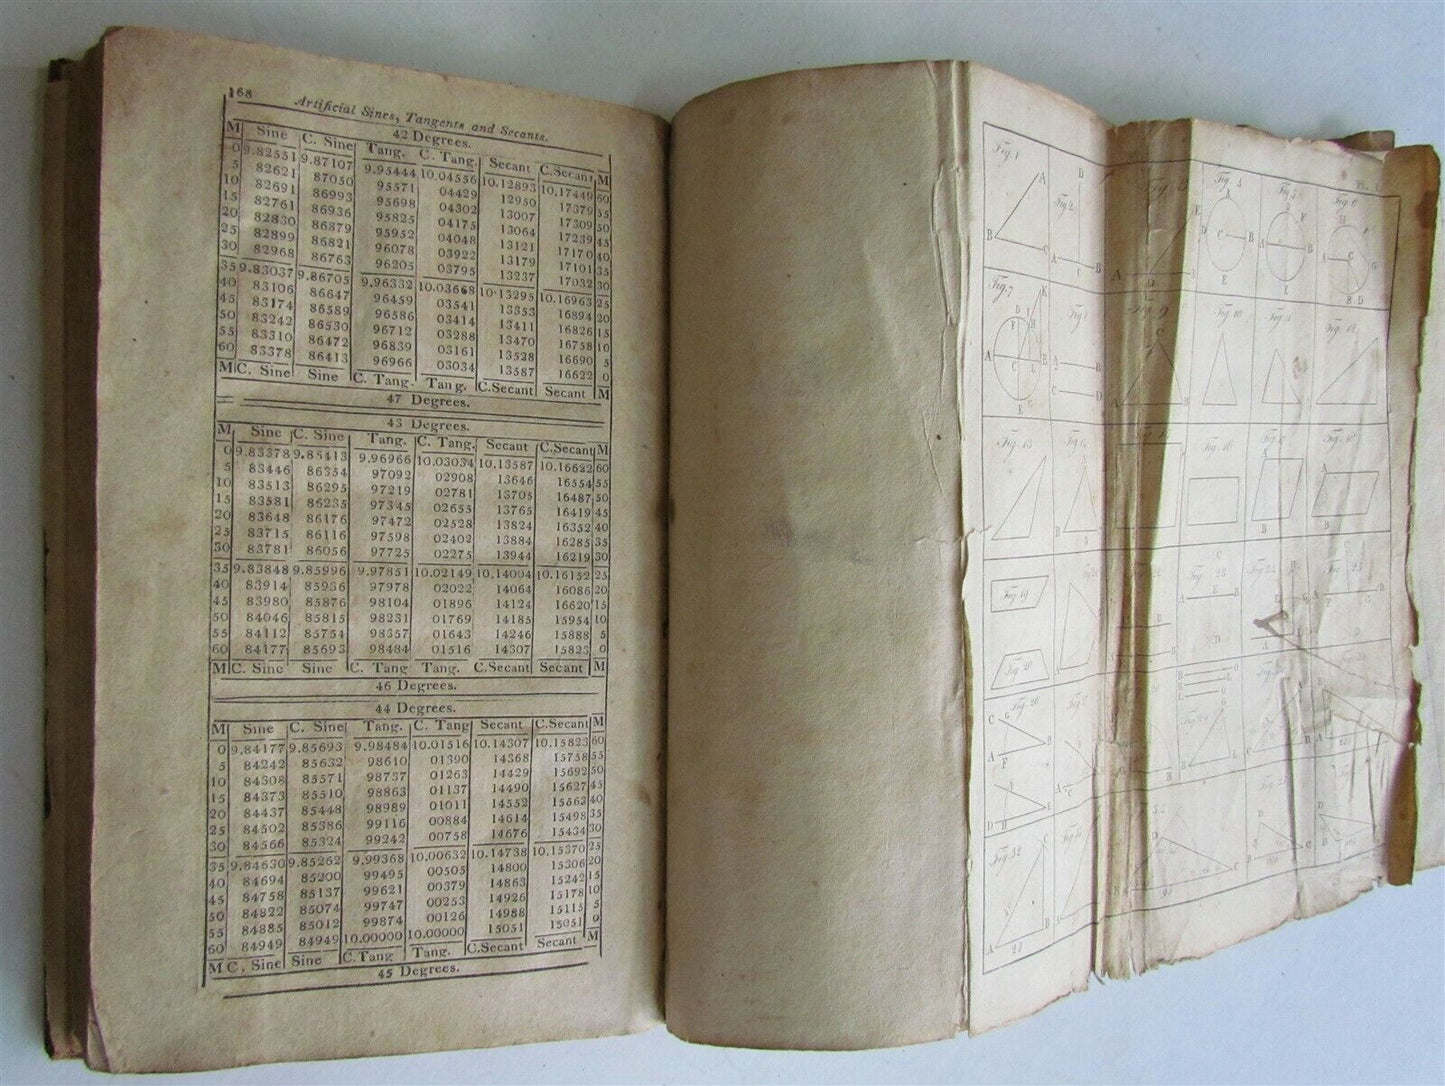 168
Artificial Sines, Tangents and Secants.
42 Degrees.
M Sine C. Sine Tang. C. Tang. Secant C.Secant M
0 9.82551 9.87107 9.95444 10.04556 10.12893 10.17449 60
5 82621 87050 95571 04429 12950 17379 55
10 82691 86993 95698 04302 13007 17309 50
15 82761 86936 95825 04175 13064 17239 45
20 82830 86879 95952 04048 13121 17170 40
25 82899 86821 96078 03922 13179 17101 35
30 82968 86763 96205 03795 13237 17032 30
35 9.83037 9.86705 9.96332 10.03668 10.13295 10.16963 25
40 83106 86647 96459 03541 13353 16894 20
45 83174 86589 96586 03414 13411 16826 15
50 83242 86530 96712 03288 13470 16758 10
55 83310 86472 96839 03161 13528 16690 5
60 83378 86413 96966 03034 13587 16622 0
M C. Sine Sine C. Tang. Tang. C.Secant Secant M
47 Degrees.
43 Degrees.
M Sine C. Sine Tang. C. Tang. Secant C.Secant M
0 9.83378 9.85413 9.96966 10.03034 10.13587 10.16622 60
5 83446 86354 97092 02908 13646 16554 55
10 83513 86295 97219 02781 13705 16487 50
15 83581 86235 97345 02655 13765 16419 45
20 83648 86176 97472 02528 13824 16352 40
25 83715 86116 97598 02402 13884 16285 35
30 83781 86056 97725 02275 13944 16219 30
35 9.83848 9.85996 9.97851 10.02149 10.14004 10.16152 25
40 83914 85936 97978 02022 14064 16086 20
45 83980 85876 98104 01896 14124 16620 15
50 84046 85815 98231 01769 14185 15954 10
55 84112 85754 98357 01643 14246 15888 5
60 84177 85693 98484 01516 14307 15823 0
M C. Sine Sine C. Tang Tang. C.Secant Secant M
46 Degrees.
44 Degrees.
M Sine C. Sine Tang. C. Tang Secant C.Secant M
0 9.84177 9.85693 9.98484 10.01516 10.14307 10.15823 60
5 84242 85632 98610 01390 14368 15758 55
10 84308 85571 98737 01263 14429 15692 50
15 84373 85510 98863 01137 14490 15627 45
20 84437 85448 98989 01011 14552 15563 40
25 84502 85386 99116 00884 14614 15498 35
30 84566 85324 99242 00758 14676 15434 30
35 9.84630 9.85262 9.99368 10.00632 10.14738 10.15370 25
40 84694 85200 99495 00505 14800 15306 20
45 84758 85137 99621 00379 14863 15242 15
50 84822 85074 99747 00253 14926 15178 10
55 84885 85012 99874 00126 14988 15115 5
60 84949 84949 10.00000 10.00000 15051 15051 0
M C. Sine Sine C.Tang Tang. C.Secant Secant M
45 Degrees.
Fig. 1 Fig 2 Fig. 4 Fig. 5 Fig. 6
Fig. 7 Fig. 10 Fig. 12
Fig. 13 Fig. 16 Fig. 18
Fig. 19
Fig. 20
Fig. 26
Fig. 32